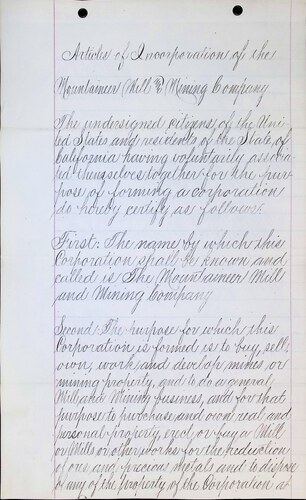 Articles of Incorporation of the
Mountaineer Mill & Mining Company
The undersigned citizens of the Uni-
ted States and residents of the State of
California having voluntarily associa-
ted themselves together for the pur-
pose of forming a corporation
do hereby certify as follows.
First: The name by which this
Corporation shall be known and
called is The Mountaineer Mill
and Mining Company
Second: The purpose for which this
Corporation is formed is to buy, sell,
own, work, and develop mines or
mining property, and to do a general
Mill and Mining business, and for that
purpose to purchase and own real and
personal Property, erect or buy a Mill
or Mills or other works for the reduction
of ores and precious Metals and to dispose
of any of the property of the Corporation at